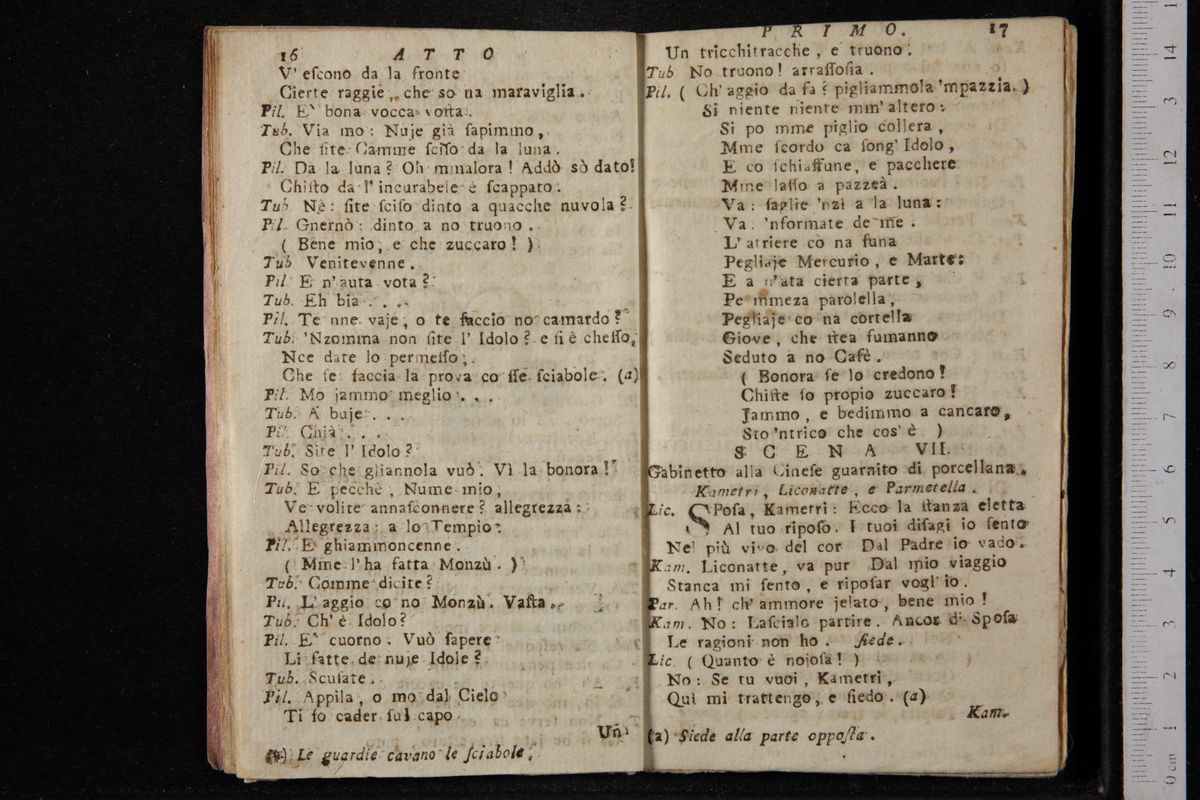 16 ATTO
V' eſcono da la fronte
Cierte raggie, che so na maraviglia.
Pil. E` bona vocca vorta.
Tub. Via mo: Nuje già ſapimmo,
Che ſite Camme ſciſſo da la luna.
Pil. Da la luna? Oh mmalora! Addò sò dato!
Chiſto da l' incurabele è ſcappato.
Tub. Nè: ſite ſciſo dinto a quacche nuvola?
Pil. Gnernò: dinto a no truono.
( Bene mio, e che zuccaro! )
Tub Venitevenne.
Pil E n' auta vota?
Tub. Eh bia . . .
Pil. Te nne vaje, o te faccio no camardo?
Tub. 'Nzomma non ſite l' Idolo? e ſi è cheſſo,
Nce date lo permeſſo,
Che ſe faccia la prova co ſſe ſciabole. (a)
Pil. Mo jammo meglio . . .
Tub. A buje . . .
Pil. Chià . . .
Tub. Site l' Idolo?
Pil. So che gliannola vuò. Vì la bonora!
Tub. E pecchè, Nume mio,
Ve volite annaſconnere? allegrezza:
Allegrezza: a lo Tempio.
Pil. E ghiammoncenne.
( Mme l' ha fatta Monzù. )
Tub. Comme dicite?
Pil. L' aggio co no Monzù. Vaſta.
Tub. Ch' è Idolo?
Pil. E` cuorno. Vuò ſapere
Li fatte de nuje Idole?
Tub. Scuſate.
Pil. Appila, o mo dal Cielo
Ti fo cader ſul capo
Un
(a) Le guardie cavano le ſciabole.
PRIMO. 17
Un tricchitracche, e truono.
Tub No truono! arraſſoſia.
Pil. ( Ch' aggio da fa? pigliammola 'mpazzia. )
Si niente niente mm' altero:
Si po mme piglio collera,
Mme ſcordo ca ſong' Idolo,
E co ſchiaffune, e pacchere
Mme laſſo a pazzeà.
Va: ſaglie 'nzì a la luna:
Va: 'nformate de me.
L' arriere co na funa
Pegliaje Mercurio, e Marte:
E a n'ata cierta parte,
Pe mmeza parolella,
Pegliaje co na cortella
Giove, che ſtea fumanno
Seduto a no Cafè.
( Bonora ſe lo credono!
Chiſte ſo propio zuccaro!
Jammo, e bedimmo a cancaro,
Sto 'ntrico che cos' è )
SCENA VII.
Gabinetto alla Cineſe guarnito di porcellana.
Kametri, Liconatte, e Parmetella.
Lic. SPoſa, Kametri: Ecco la ſtanza eletta
Al tuo ripoſo. I tuoi diſagi io ſento
Nel più vivo del cor Dal Padre io vado.
Kam. Liconatte, va pur Dal mio viaggio
Stanca mi ſento, e ripoſar vogl' io.
Par. Ah! ch' ammore jelato, bene mio!
Kam. No: Laſcialo partire. Ancor di Spoſa
Le ragioni non ho. ſiede.
Lic. ( Quanto è nojoſa! )
No: Se tu vuoi, Kametri,
Quì mi trattengo, e ſiedo. (a)
Kam.
(a) Siede alla parte oppoſta.
0 cm 1 2 3 4 5 6 7 8 9 10 11 12 13 14